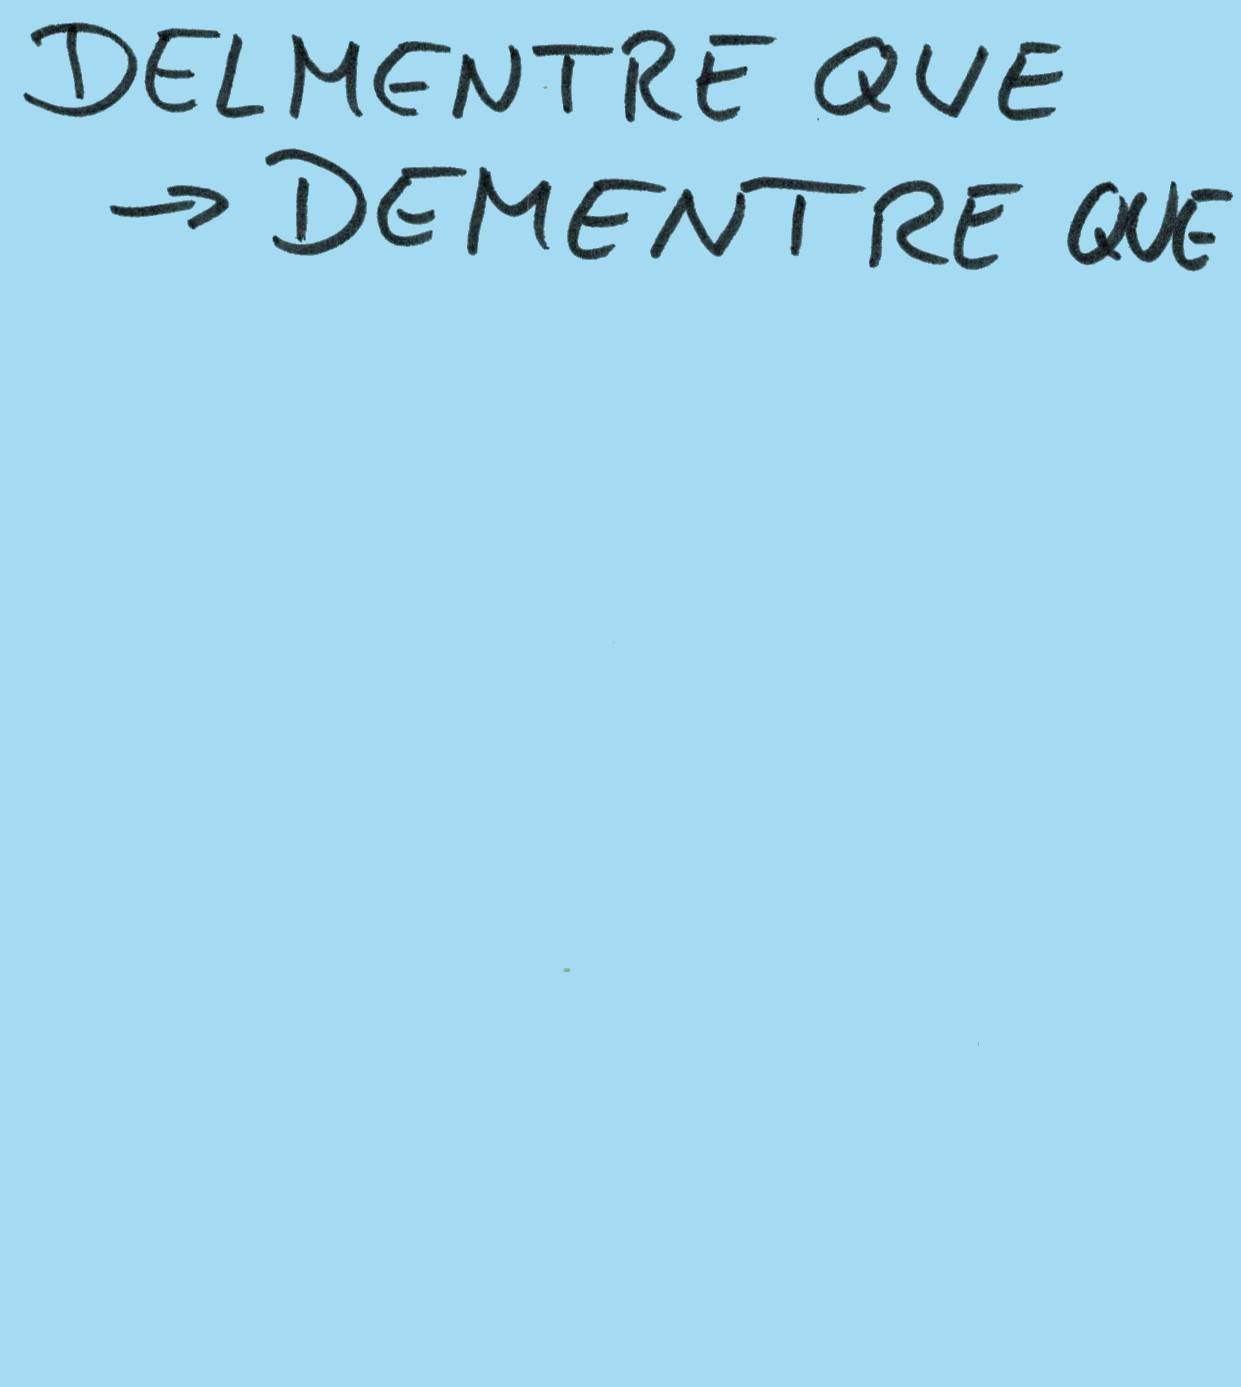 DELMENTRE QUE
→ DEMENTRE QUE